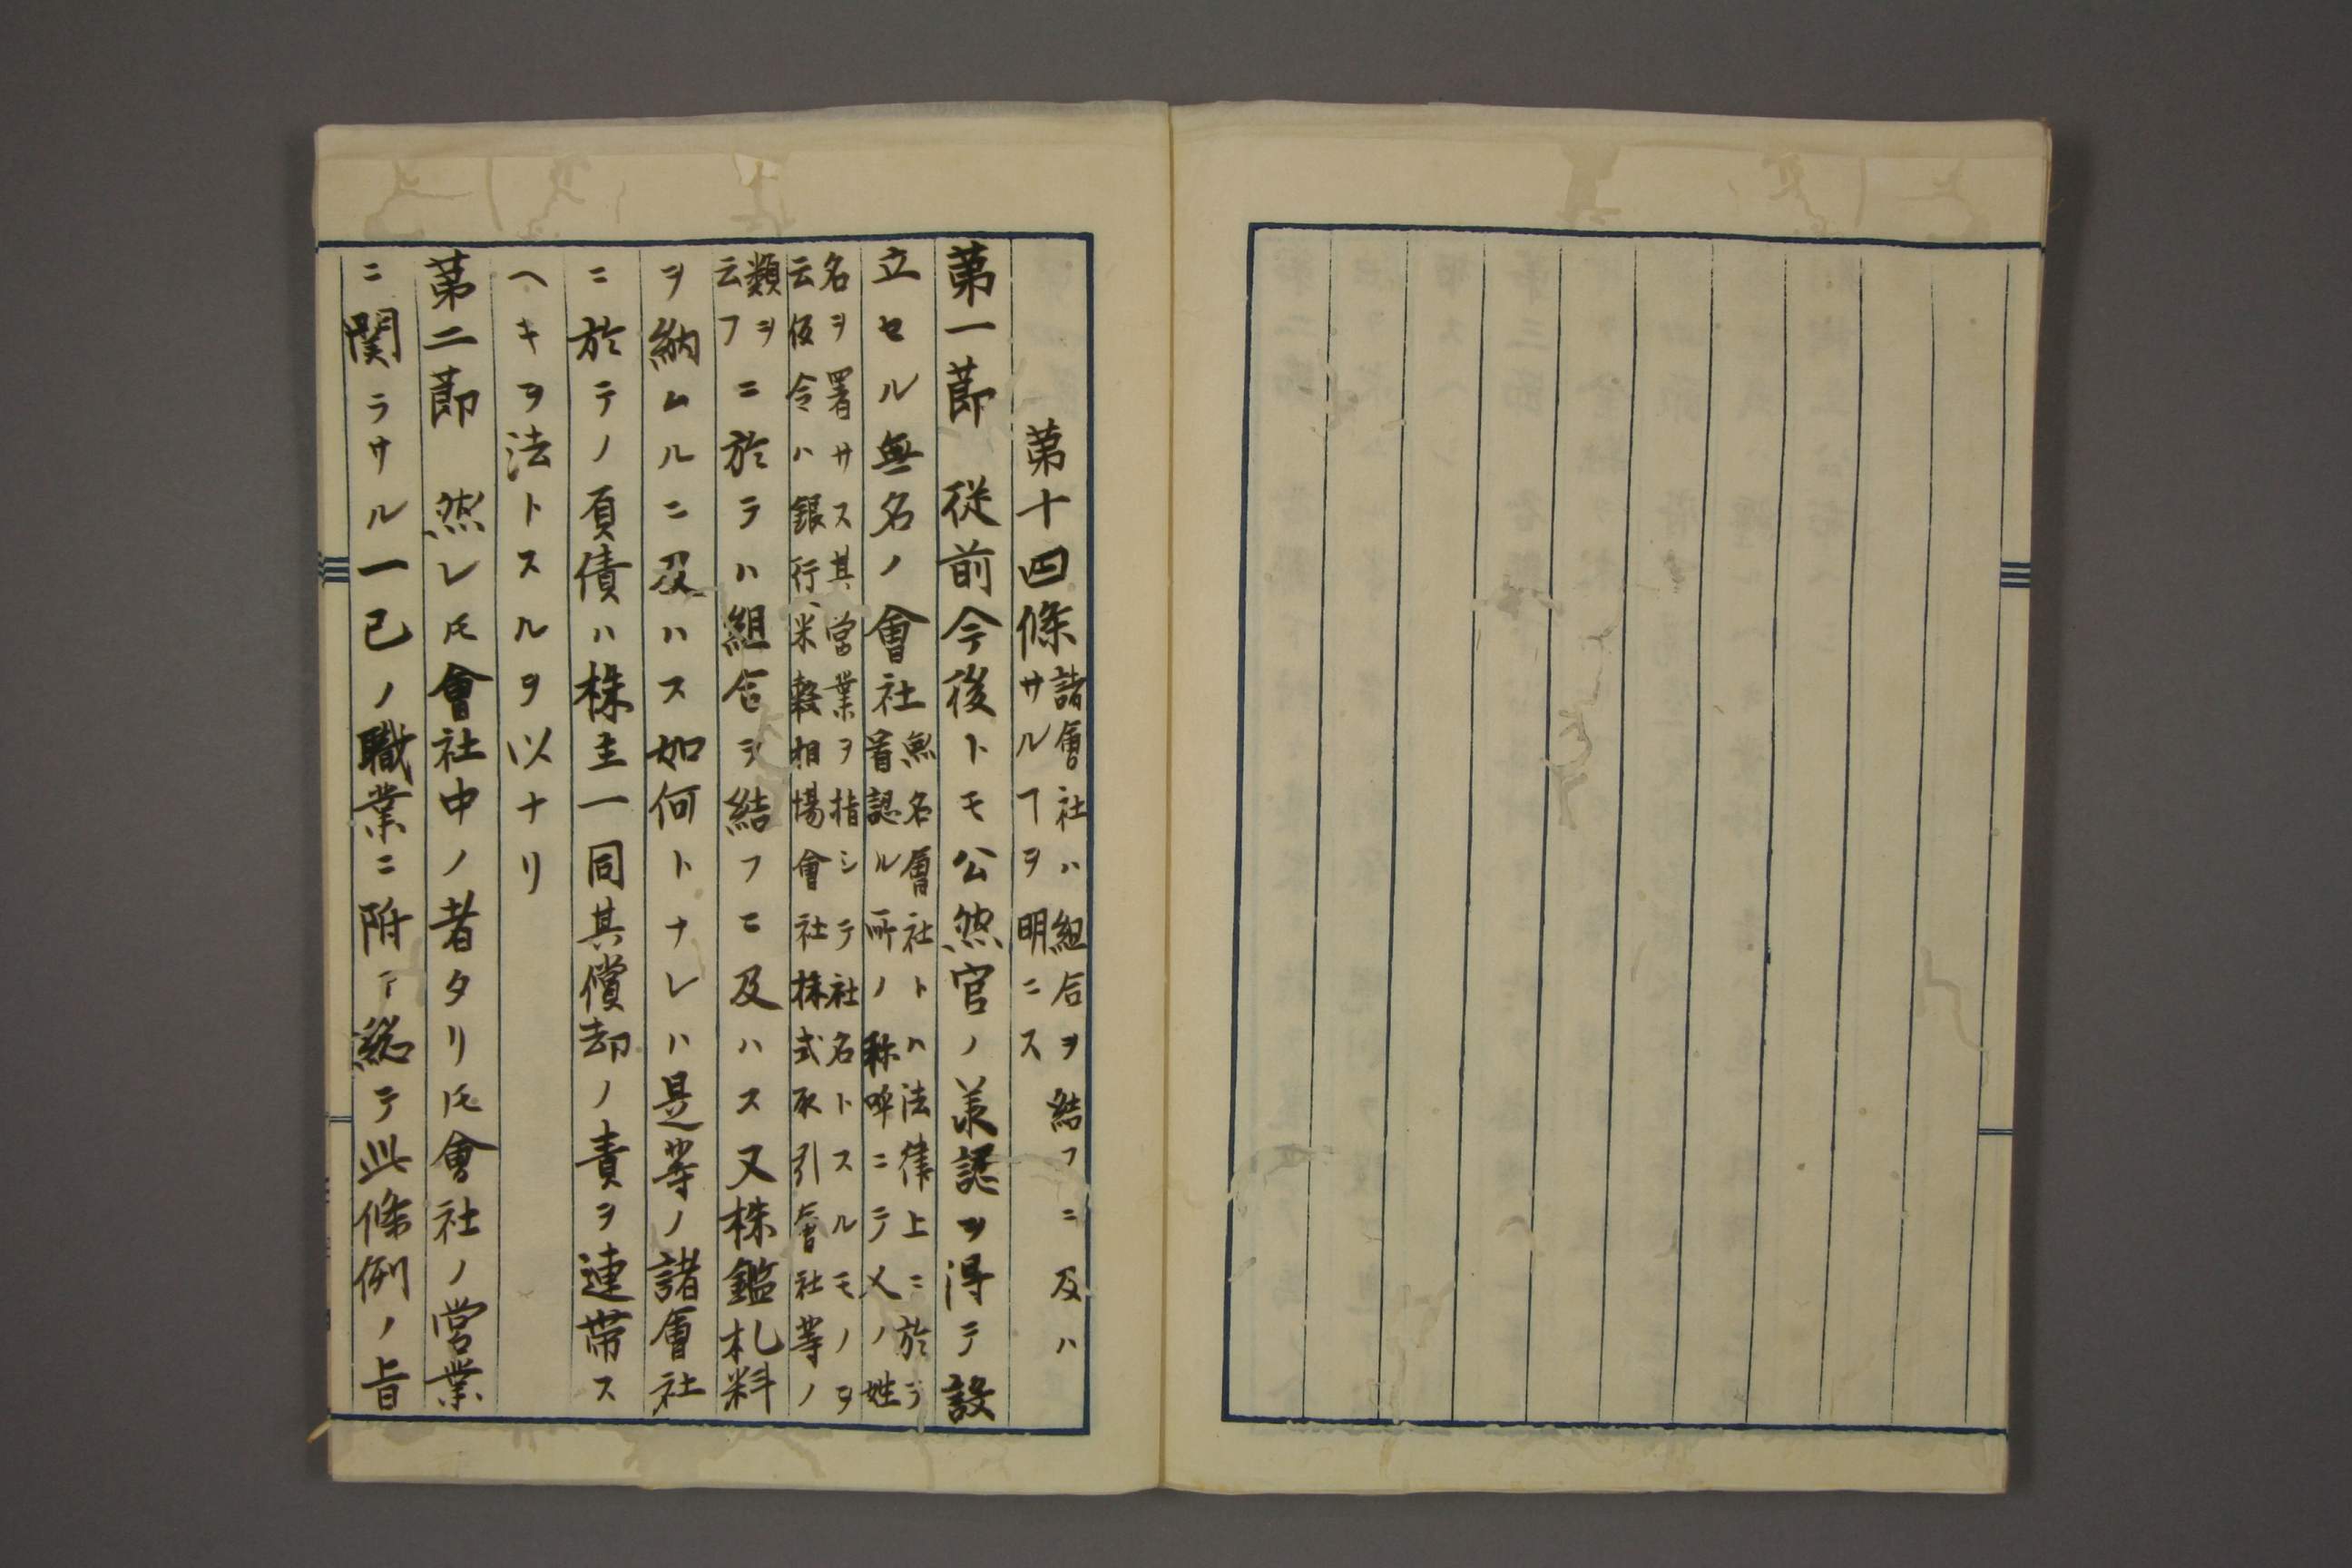 第十四條
諸會社ハ組合ヲ結フニ及ハ
サルヿヲ明ニス
第一節　従前今後トモ公然官ノ承認ヲ得テ設
立セル無名ノ會社
無名會社トハ法律上ニ於テ
看認ル所ノ称呼ニテ人ノ姓
名ヲ署サス其営業ヲ指シテ社名トスルモノヲ
云仮令ハ銀行米穀相場會社株式取引會社等ノ
類ヲ
云フ
ニ於テハ組合ヲ結フニ及ハス又株鑑札料
ヲ納ムルニ及ハス如何トナレハ是等ノ諸會社
ニ於テノ負債ハ株主一同其償却ノ責ヲ連帯ス
ヘキヲ法トスルヲ以ナリ
第二節　然レ𪜈會社中ノ者タリ𪜈會社ノ営業
ニ関ラサル一己ノ職業ニ附テ総テ此條例ノ旨